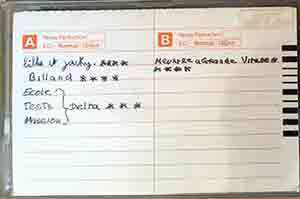 A Noise Reduction
EQ Normal
B Noise Reduction
EQ Normal
Lilla et Jacky. ****
Billand ****
MEURTRE à Grande Vitesse
****
Ecole
TESTS } Delta ***
MISSION